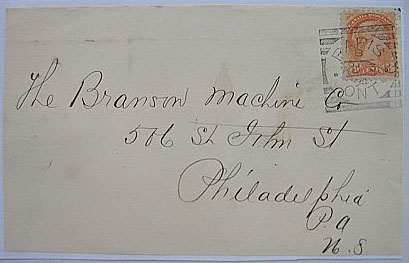 PARIS
ONT
The Branson Machine Co
506 St John St
Philadelphia
Pa
U.S